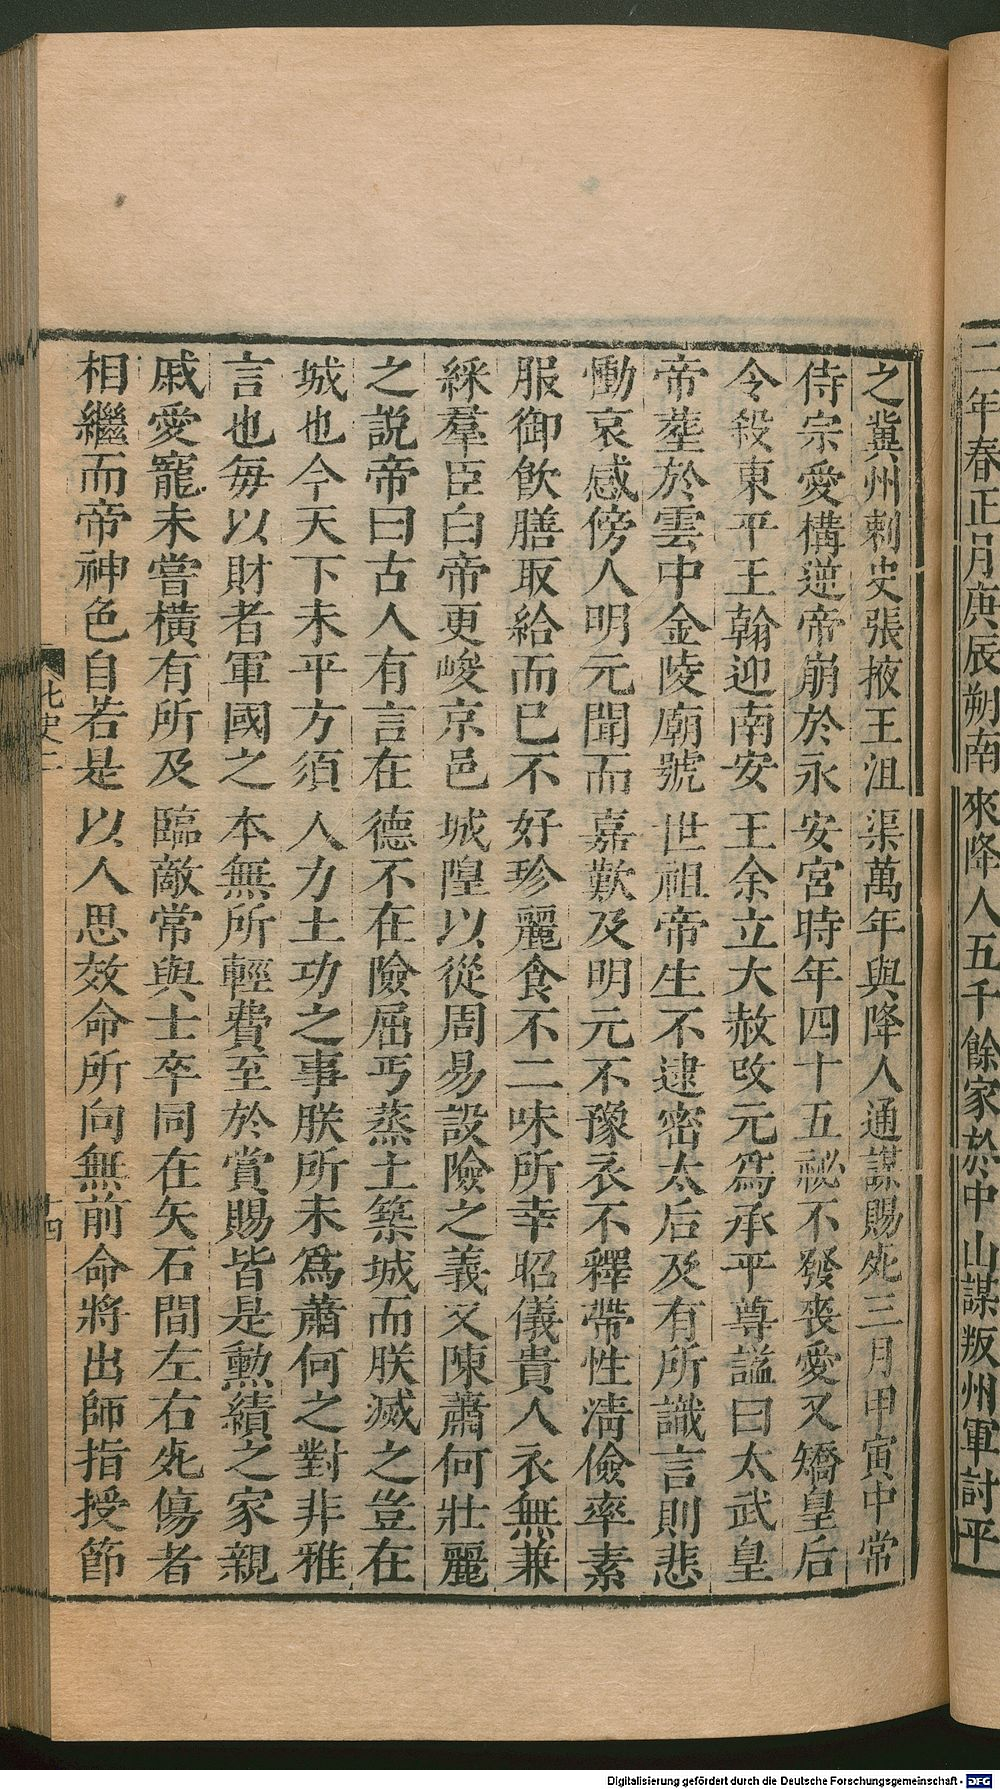 二年春正月庚辰朔南來降人五千餘家於中山謀叛州軍討平
之冀州刺史張掖王沮渠萬年與降人通謀賜死三月甲寅中常
侍宗愛構逆帝崩於永安宮時年四十五祕不發喪愛又矯皇后
令殺東平王翰迎南安王余立大赦改元爲承平尊謚曰太武皇
帝葬於雲中金陵廟號世祖帝生不逮密太后及有所識言則悲
慟哀感傍人明元聞而嘉歎及明元不豫衣不釋帶性清儉率素
服御飲膳取給而已不好珍麗食不二味所幸昭儀貴人衣無兼
綵羣臣白帝更峻京邑城隍以從周易設險之義又陳蕭何壯麗
之說帝曰古人有言在德不在險屈丐蒸土築城而朕滅之豈在
城也今天下未平方須人力土功之事朕所未爲蕭何之對非雅
言也每以財者軍國之本無所輕費至於賞賜皆是勳績之家親
戚愛寵未嘗橫有所及臨敵常與士卒同在矢石間左右死傷者
相繼而帝神色自若是以人思效命所向無前命將出師指授節
北史二
十四
Digitalisierung gefördert durch die Deutsche Forschungsgemeinschaft - DFG